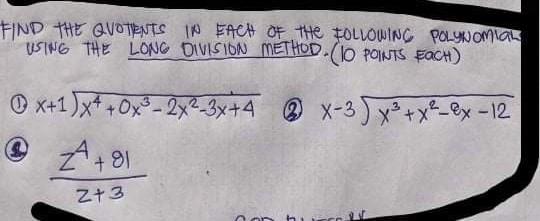 FIND THE QUOTIENTS IN EACH OF THE FOLLOWING POLYNOMIALS
USING THE LONG DIVISION METHOD. (10 POINTS EACH)
① x+1)x⁴+0x³-2x²-3x+4 ② x-3)x³+x²-8x-12
③ z⁴+81
z+3